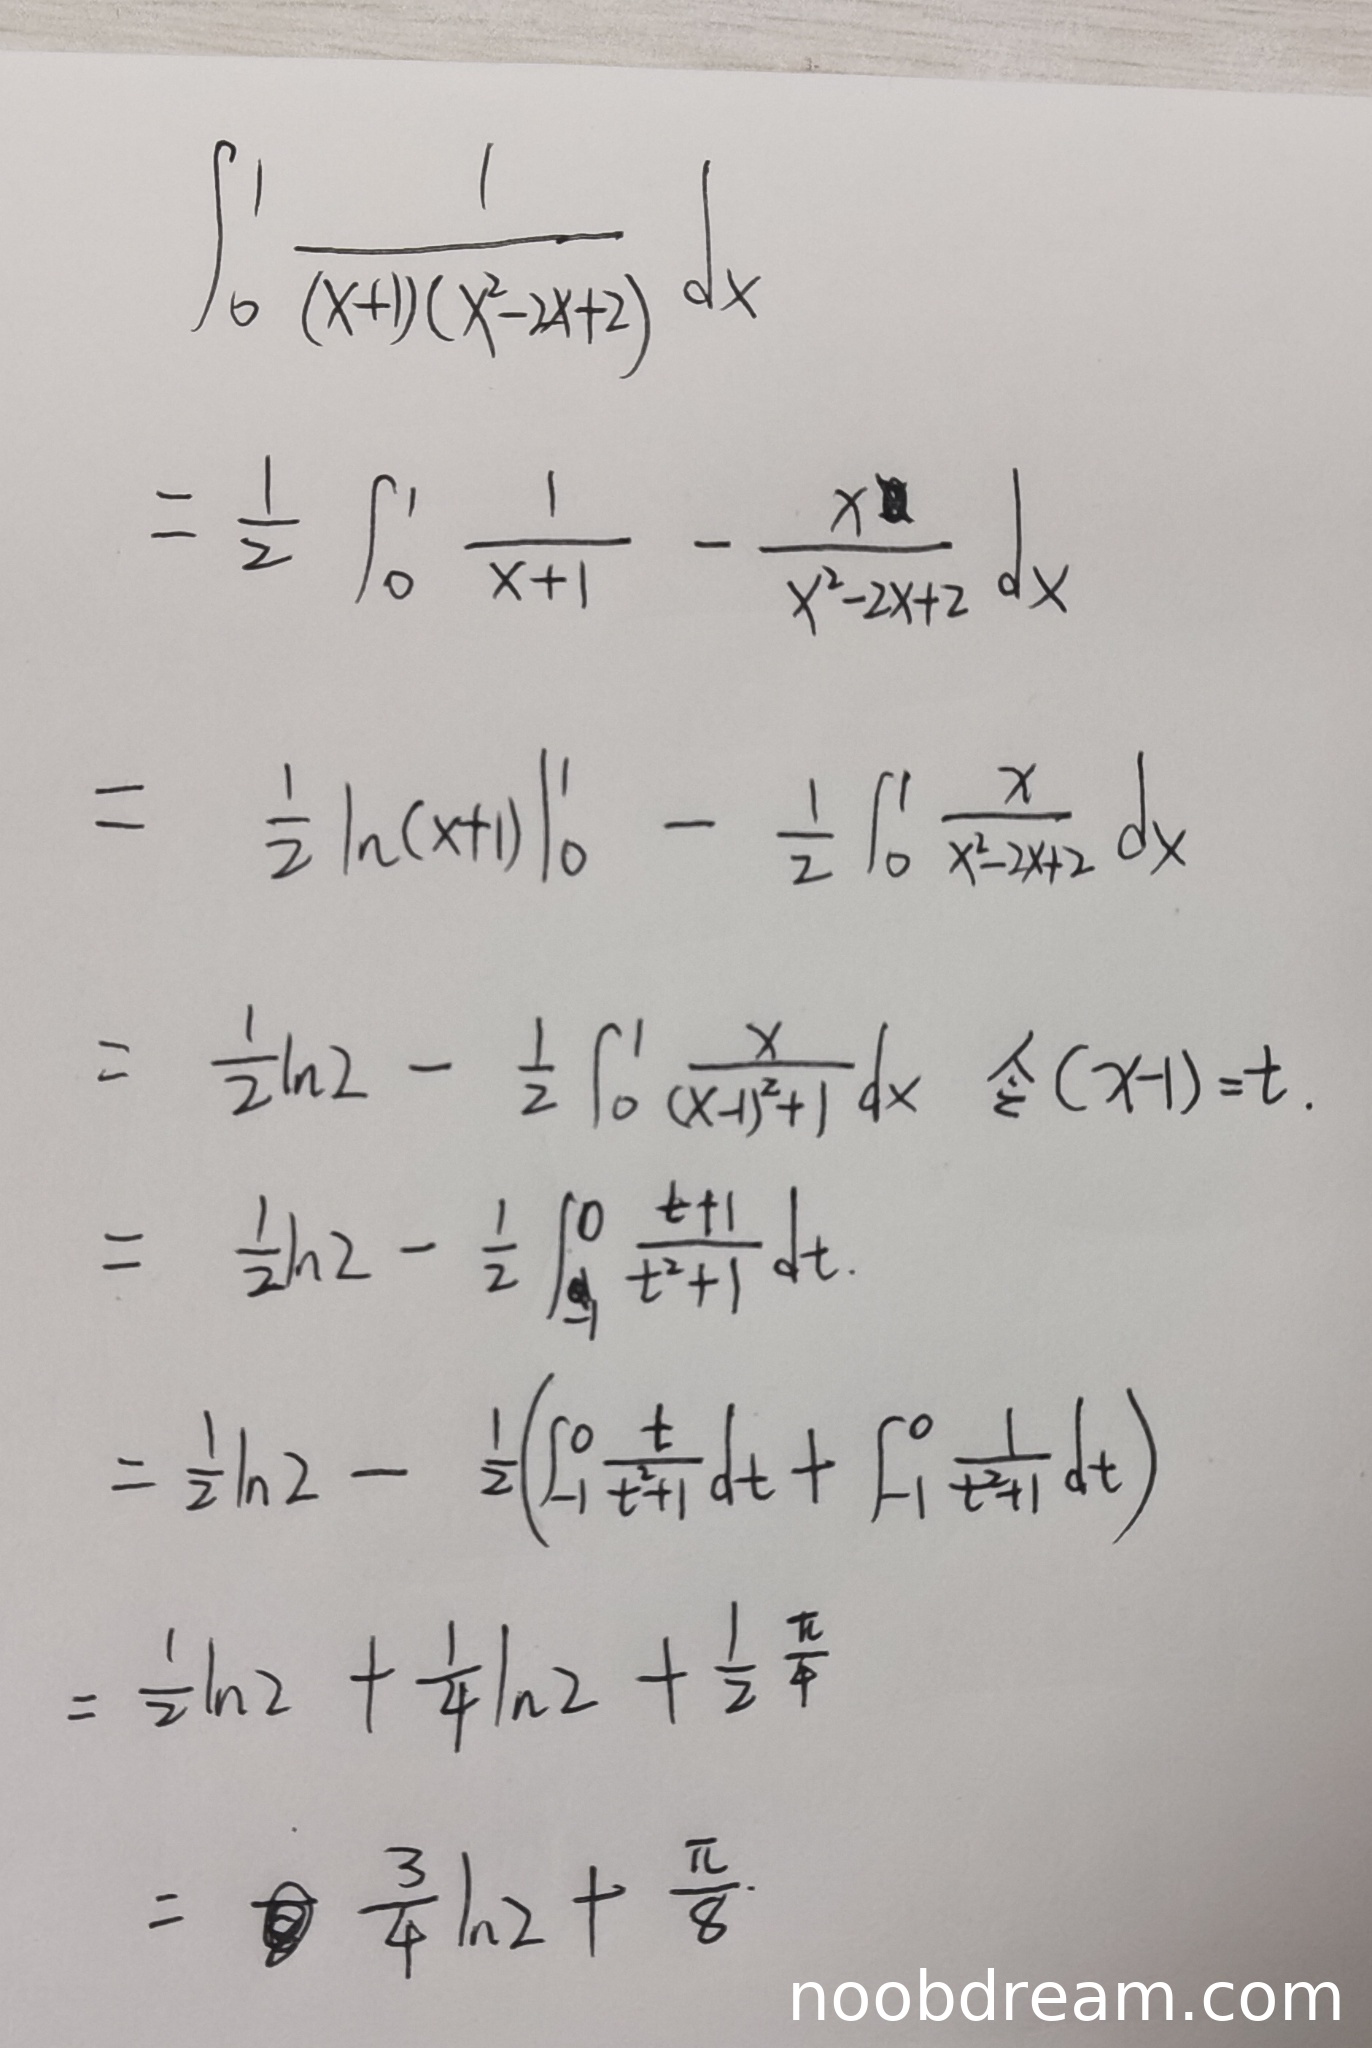 ∫₀¹ 1/((x+1)(x²-2x+2)) dx
= 1/2 ∫₀¹ 1/(x+1) - x/(x²-2x+2) dx
= 1/2 ln(x+1)|₀¹ - 1/2 ∫₀¹ x/(x²-2x+2) dx
= 1/2 ln2 - 1/2 ∫₀¹ x/((x-1)²+1) dx 令(x-1)=t.
= 1/2 ln2 - 1/2 ∫₋₁⁰ (t+1)/(t²+1) dt.
= 1/2 ln2 - 1/2(∫₋₁⁰ t/(t²+1) dt + ∫₋₁⁰ 1/(t²+1) dt)
= 1/2 ln2 + 1/4 ln2 + 1/2 π/4
= 3/4 ln2 + π/8.
noobdream.com